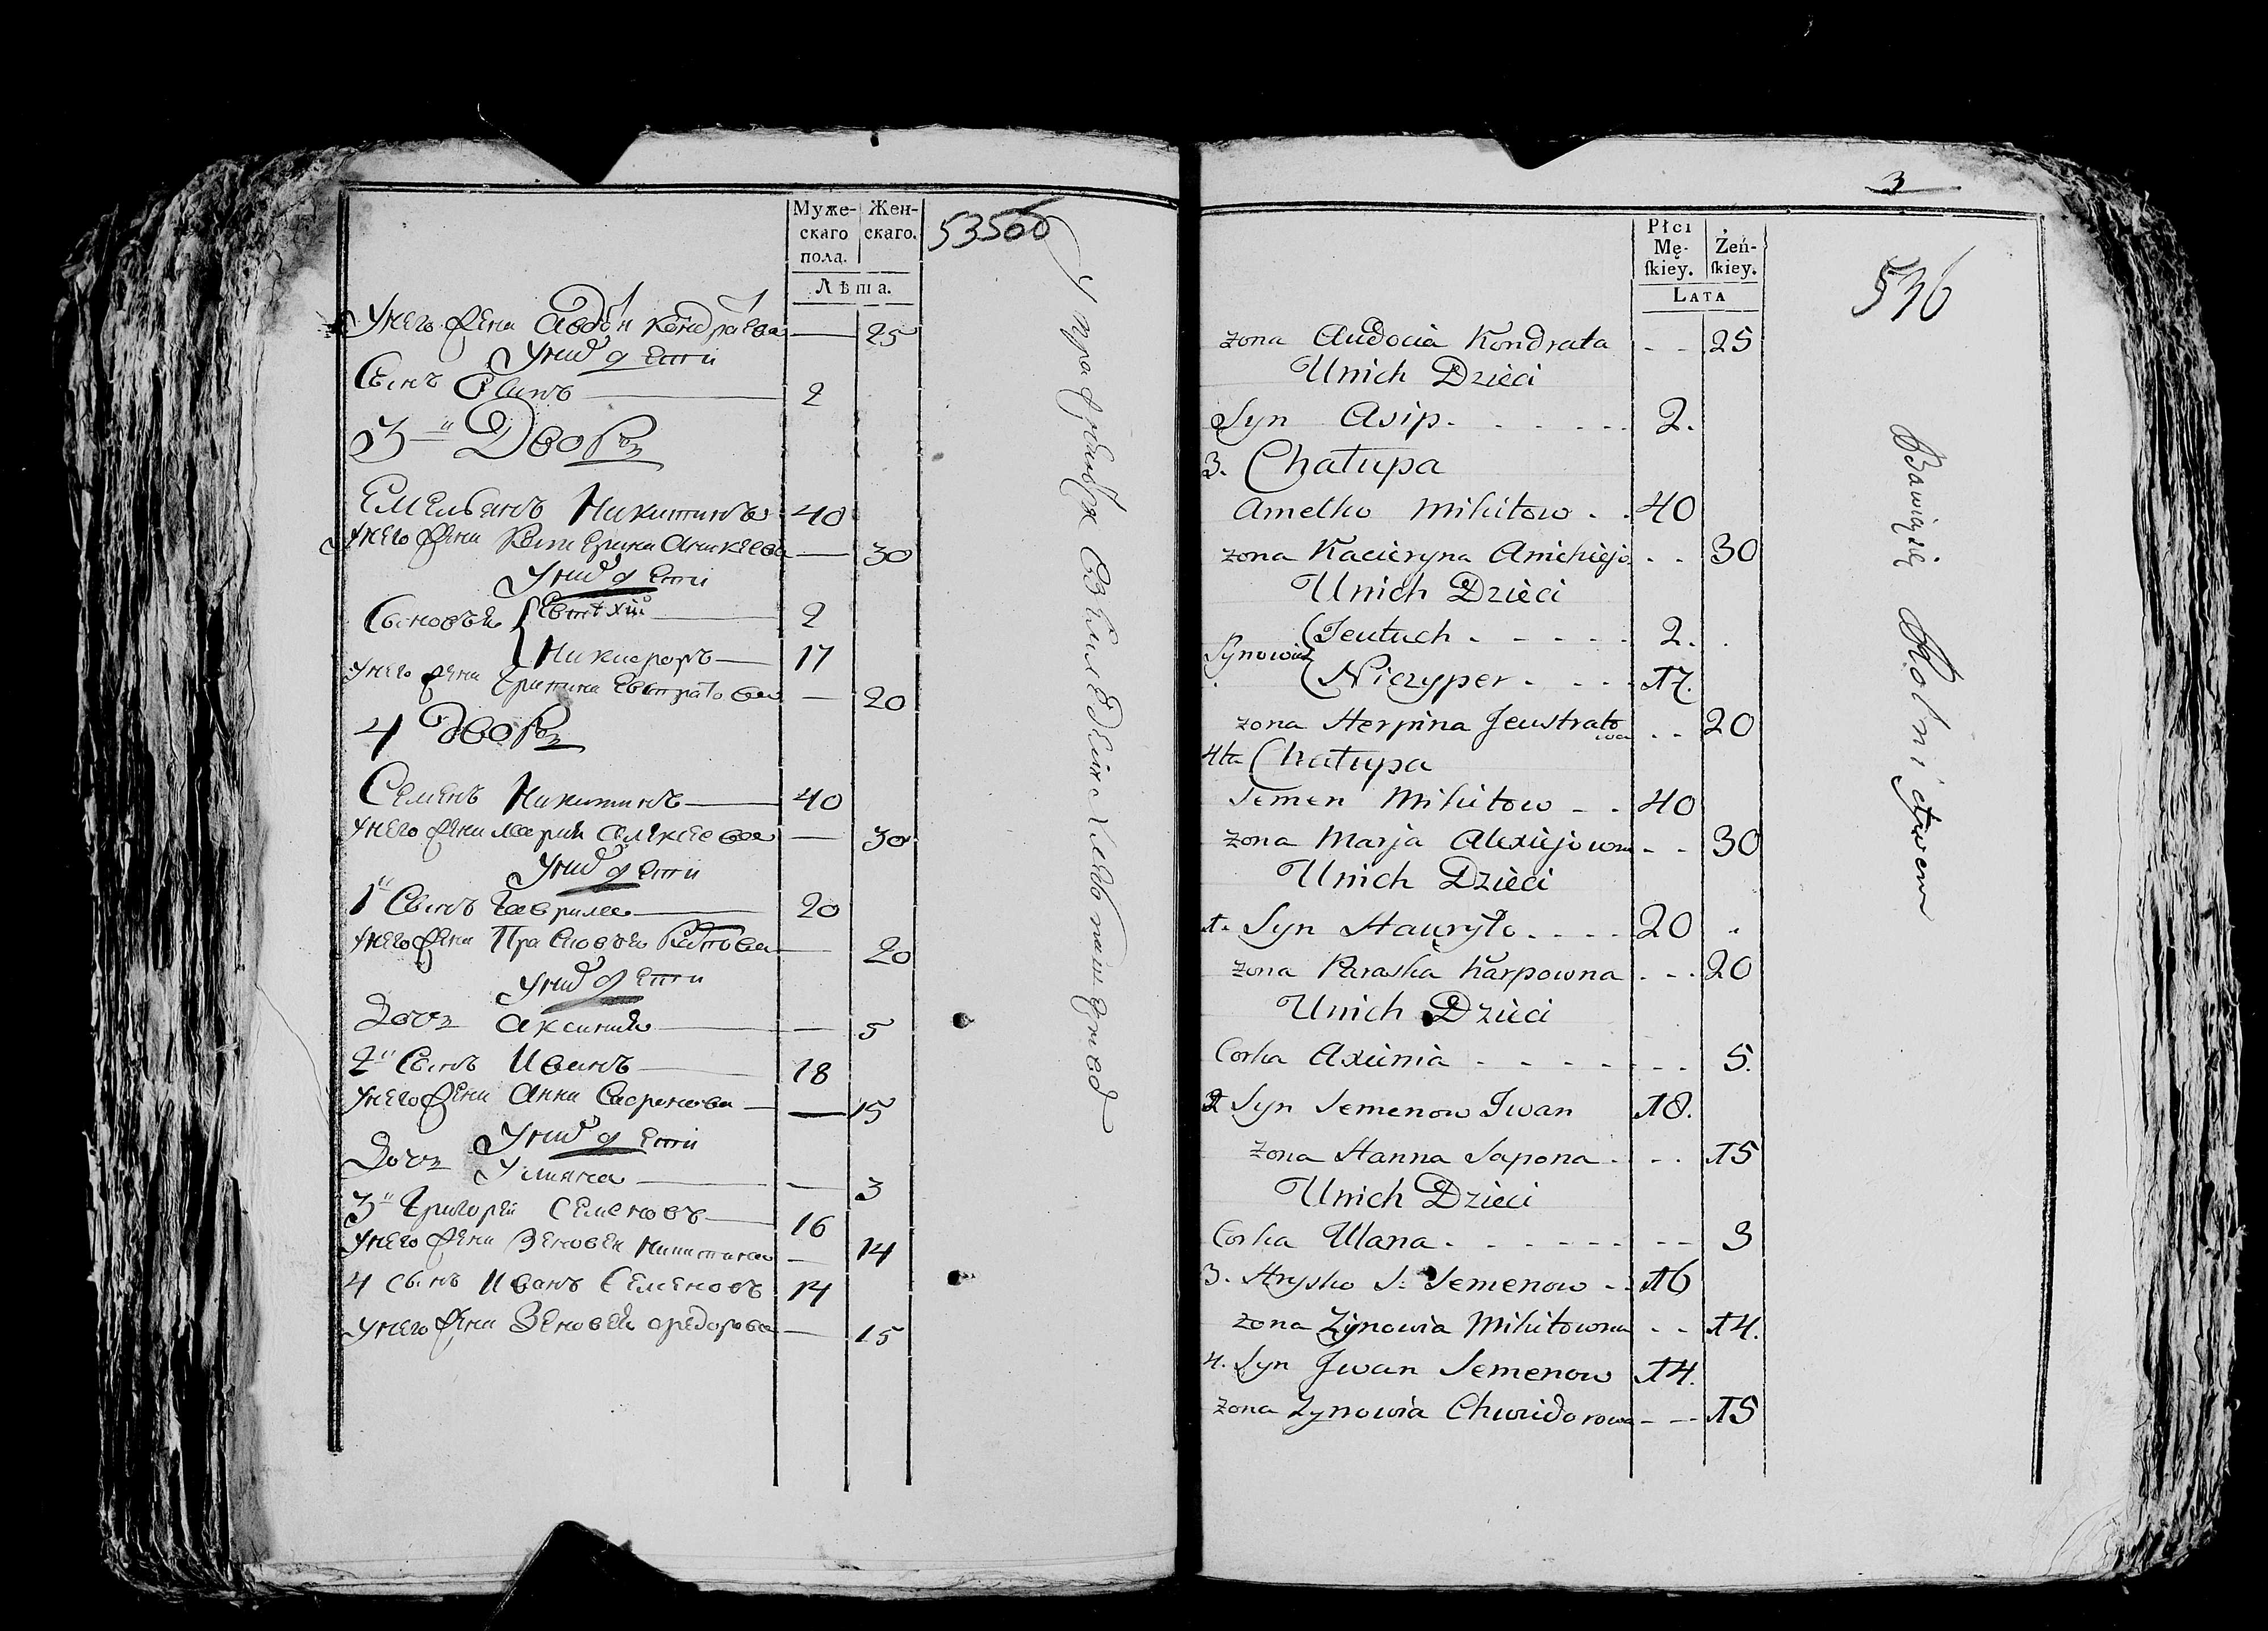 Муже-
скаго
пола.
Жен-
скаго.
Лѣта.
535об
Унего жена Авдотя кондратева — 25
Унихъ дети
Сынъ Есипъ — 2
3й Дворъ
Емельянъ Никитинъ 40
Унего жена Катерина Аникеева — 30
Унихъ дети
Сыновья Евтихий — 2
Никифоръ — 17
унего жена Еритина Евстратова — 20
4 Дворъ
Семенъ Никитинъ — 40
унего жена марья алексеева — 30
Унихъ дети
1й Сынъ Гаврила — 20
унего жена Прасковья — 20
Унихъ дети
Дочь Аксинья — 5
2й Сынъ Иванъ — 18
унего жена Анна — 15
Унихъ дети
Дочь Улияна — 3
3й Григорей Семеновъ — 16
унего жена Зеновея Никитина — 14
4 сынъ Иванъ Семеновъ 14
унего жена Зеновея Федорова — 15
3
Płci
Mę-
ſkiey.
Żeń-
ſkiey.
LATA
536
żona Audocia Kondrata - - 25
Unich Dzieci
Syn Asip. - - - - - 2.
3. Chałupa
Amelko Mikitow - . 40
żona Kacieryna Amikiejo . - 30
Unich Dzieci
Synowie
Jeutuch - - - - - 2.
Niczyper - - - - 17.
żona Herpina Jeustratowa - - 20
4ta Chałupa
Semen Mikitow - - 40
żona Marja Alexiejowna - - 30
Unich Dzieci
1. Syn Hauryło - - - - 20
żona Paraska Karpowna - - - 20
Unich Dzieci
Corka Axinia - - - - - - - 5.
2 Syn Semenow Iwan 18.
żona Hanna Sapona - - - 15
Unich Dzieci
Corka Ulana - - - - - - - - 3
3. Hrysko S. Semenow - . 16
żona Zynowia Mikitowna - - 14.
4. Syn Iwan Semenow 14.
żona Zynowia Chwiedorowa - - - 15
Bawią się Rolnictwem